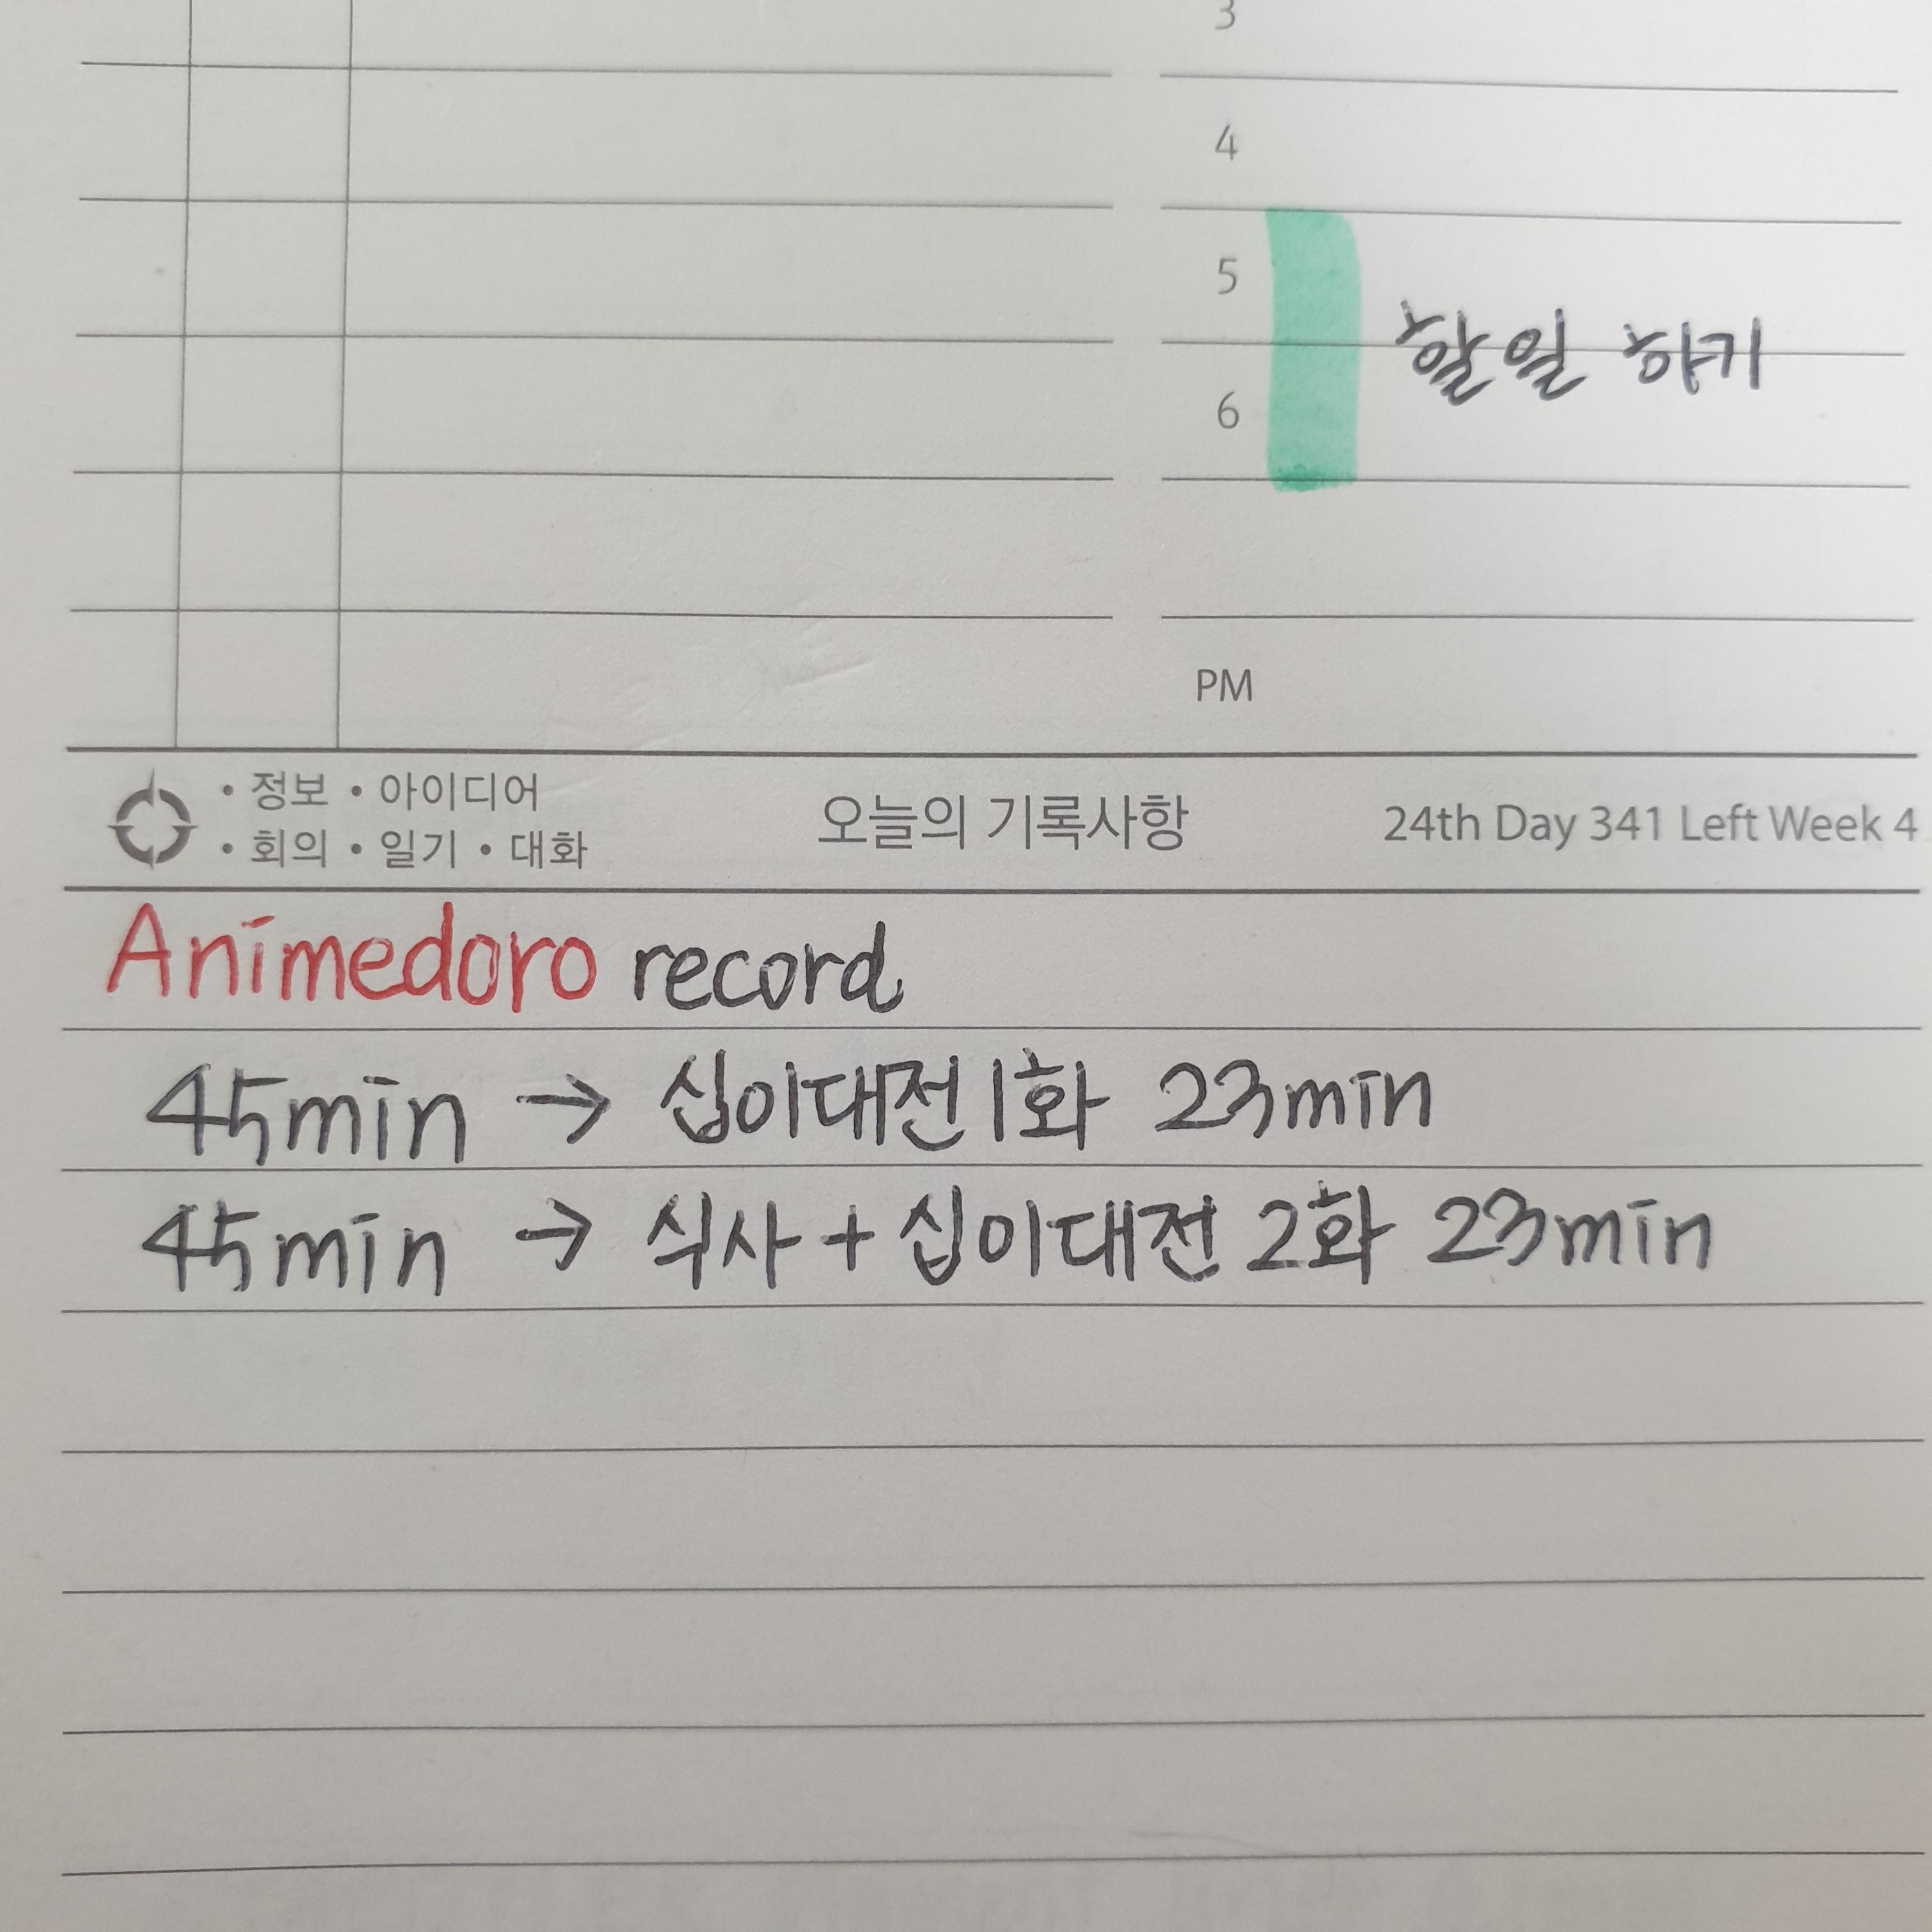 3
4
5
할일 하기
6
PM
• 정보 • 아이디어
• 회의 • 일기 • 대화
오늘의 기록사항
24th Day 341 Left Week 4
Animedoro record
45min → 십이대전 1화 23min
45min → 식사 + 십이대전 2화 23min